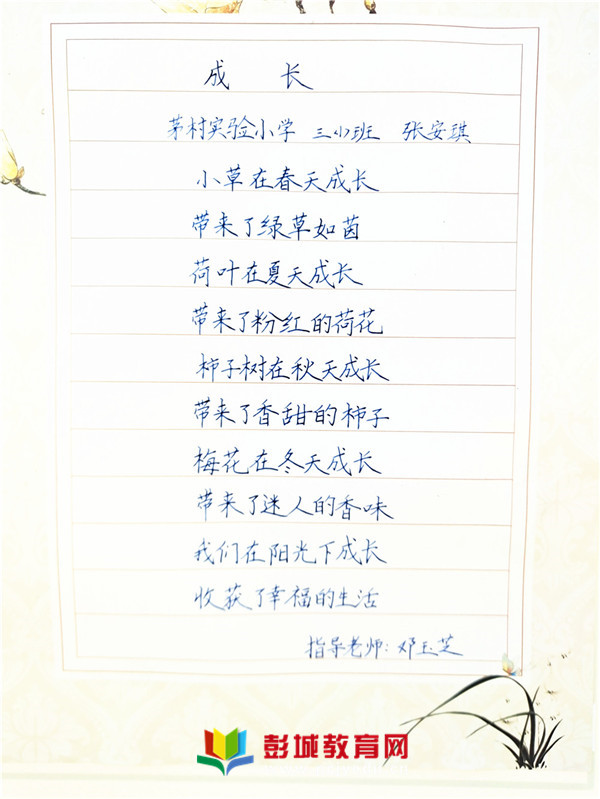 成 长
茅村实验小学 三(1)班 张安琪
小草在春天成长
带来了绿草如茵
荷叶在夏天成长
带来了粉红的荷花
柿子树在秋天成长
带来了香甜的柿子
梅花在冬天成长
带来了迷人的香味
我们在阳光下成长
收获了幸福的生活
指导老师:邓玉芝
彭城教育网